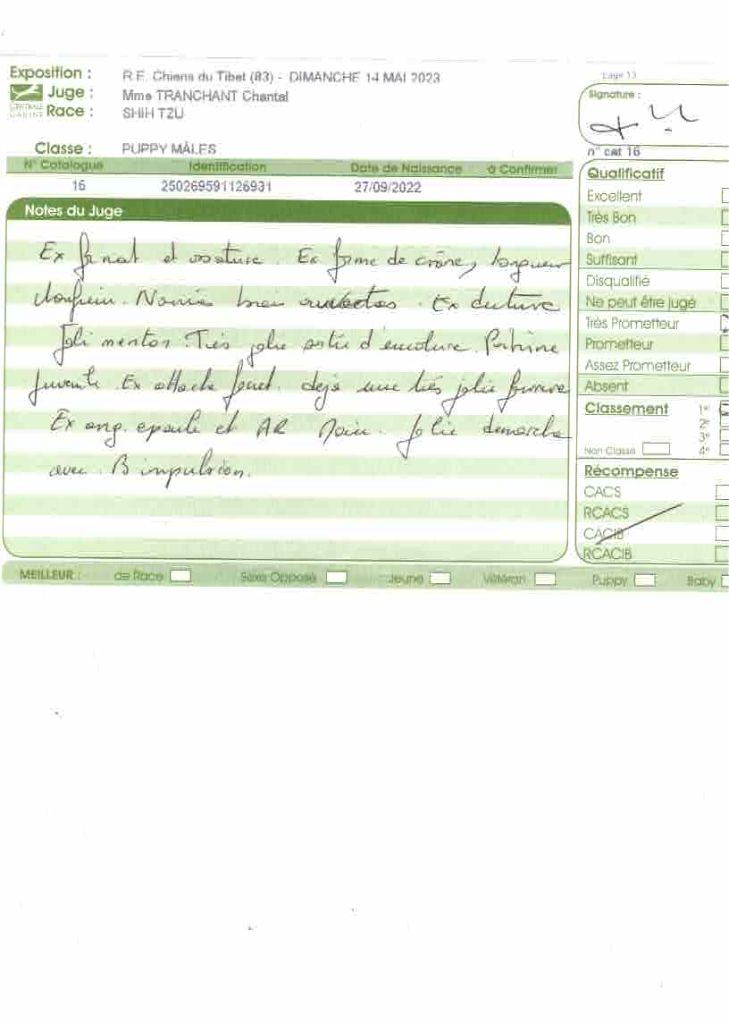 Exposition : R.E. Chiens du Tibet (83) - DIMANCHE 14 MAI 2023
Page 13
Juge : Mme TRANCHANT Chantal
Signature :
CENTRALE CANINE
Race : SHIH TZU
Classe : PUPPY MÂLES
n° cat 16
N° Catalogue Identification Date de Naissance à Confirmer
16 250269591126931 27/09/2022
Notes du Juge
Ex format et ossature. Ex forme de crâne, longueur
chanfrein. Narines bien ouvertes. Ex denture
Joli menton. Très jolie sortie d'encolure. Poitrine
juvénile. Ex attache fouet. déjà une très jolie fourrure
Ex ang. epaule et AR Noir. Jolie demarche
avec B impulsion.
Qualificatif
Excellent
Très Bon
Bon
Suffisant
Disqualifié
Ne peut être jugé
Très Prometteur
Prometteur
Assez Prometteur
Absent
Classement 1er
2e
3e
Non Classé 4e
Récompense
CACS
RCACS
CACIB
RCACIB
MEILLEUR : de Race Sexe Opposé Jeune Vétéran Puppy Baby